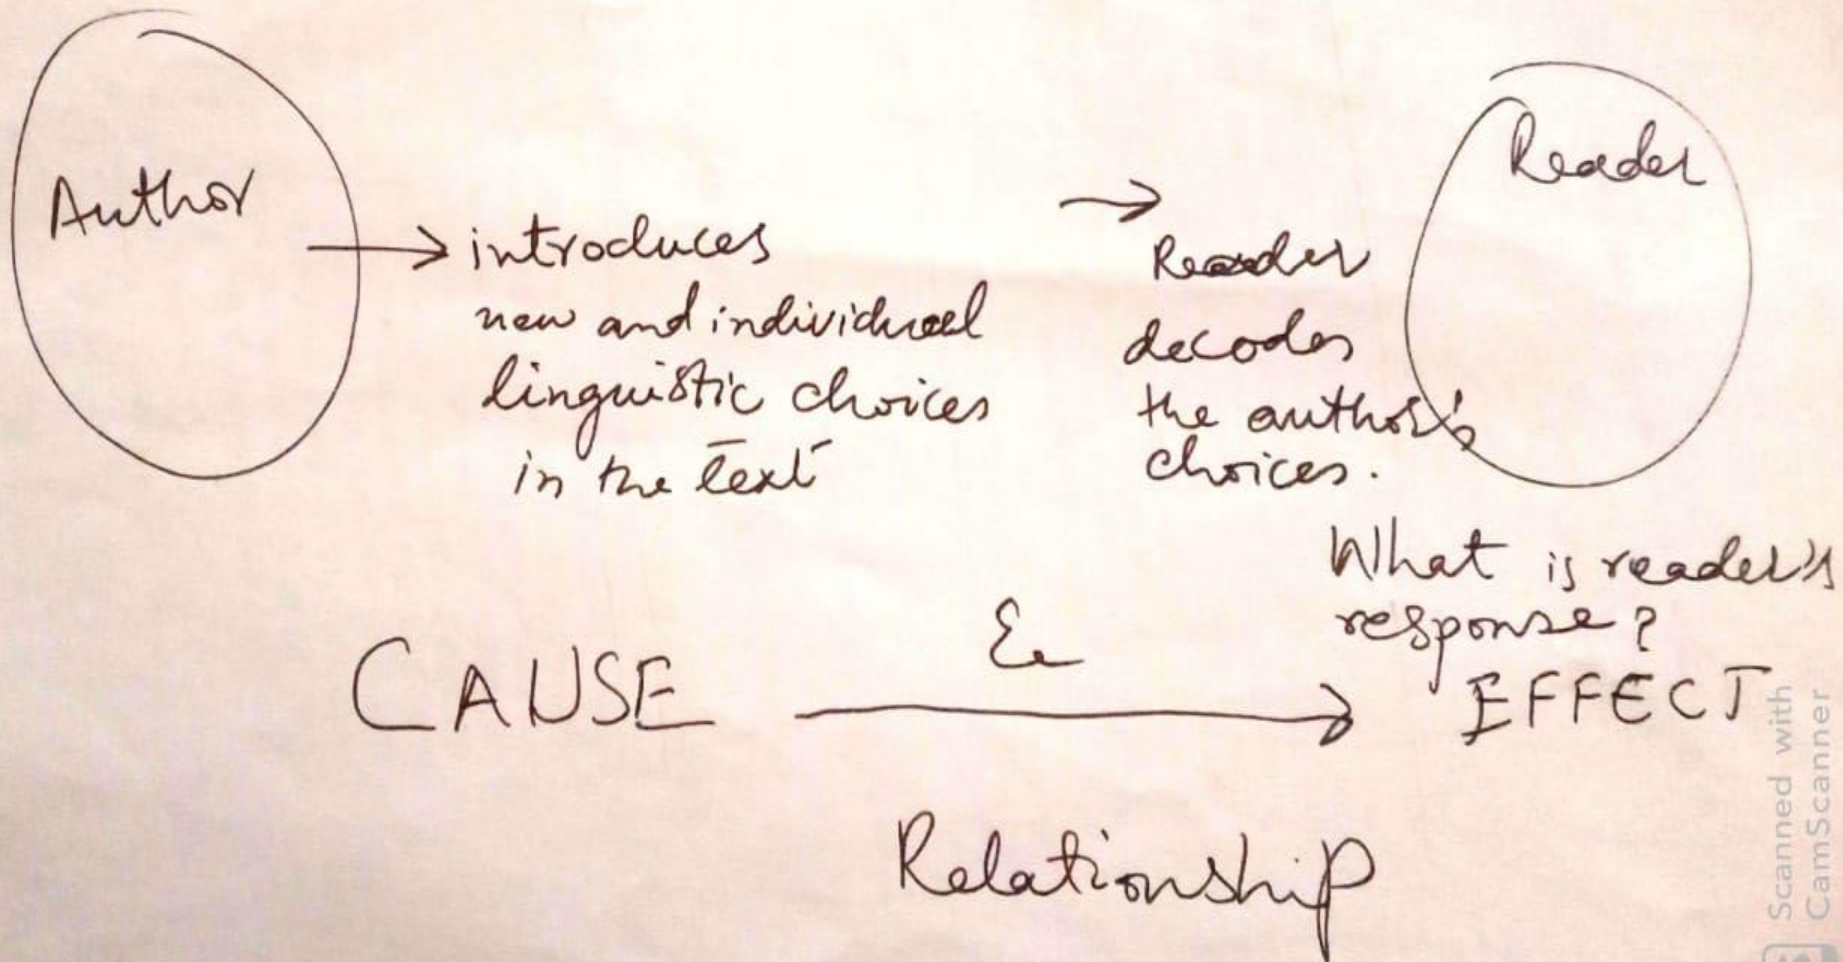 Author
→ introduces
new and individual
linguistic choices
in the text
→
Reader
decodes
the author's
choices.
Reader
What is reader's
response?
CAUSE & → EFFECT
Relationship
Scanned with
CamScanner